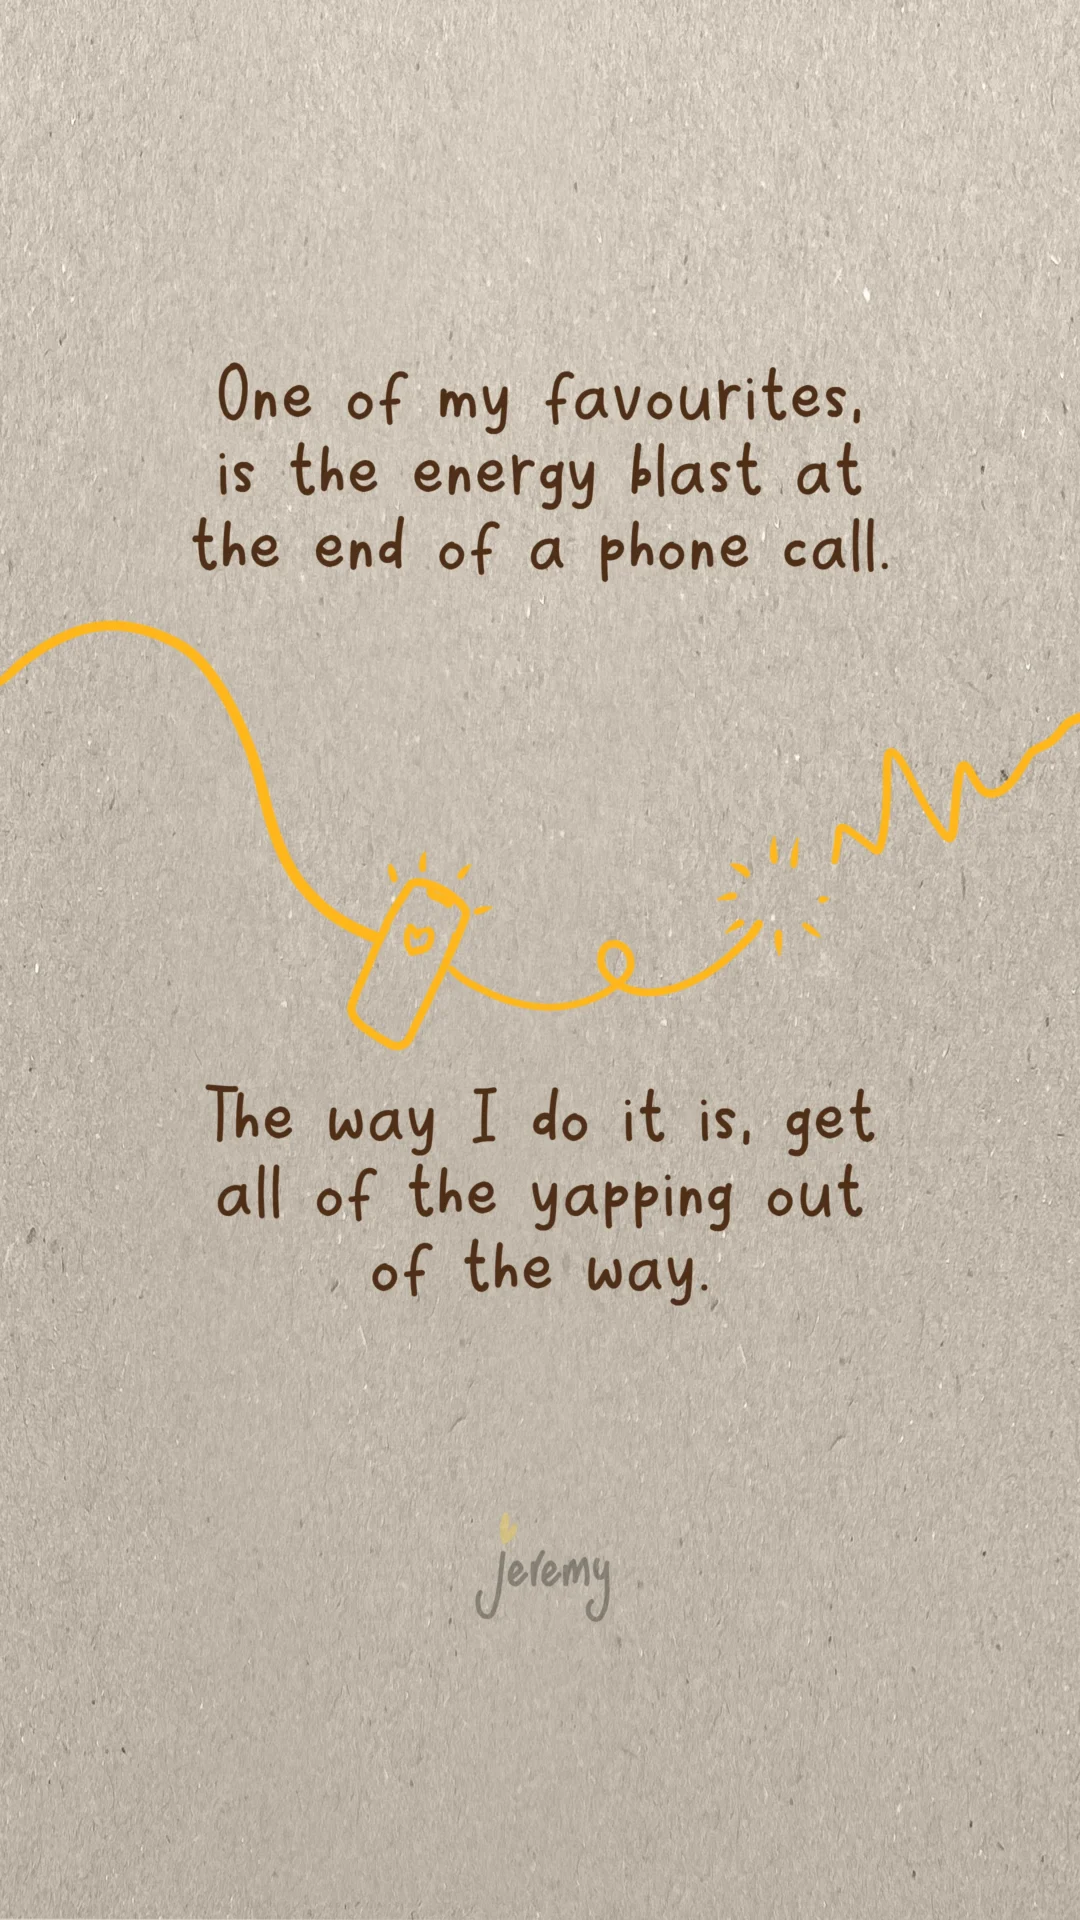 One of my favourites,
is the energy blast at
the end of a phone call.
The way I do it is, get
all of the yapping out
of the way.
jeremy